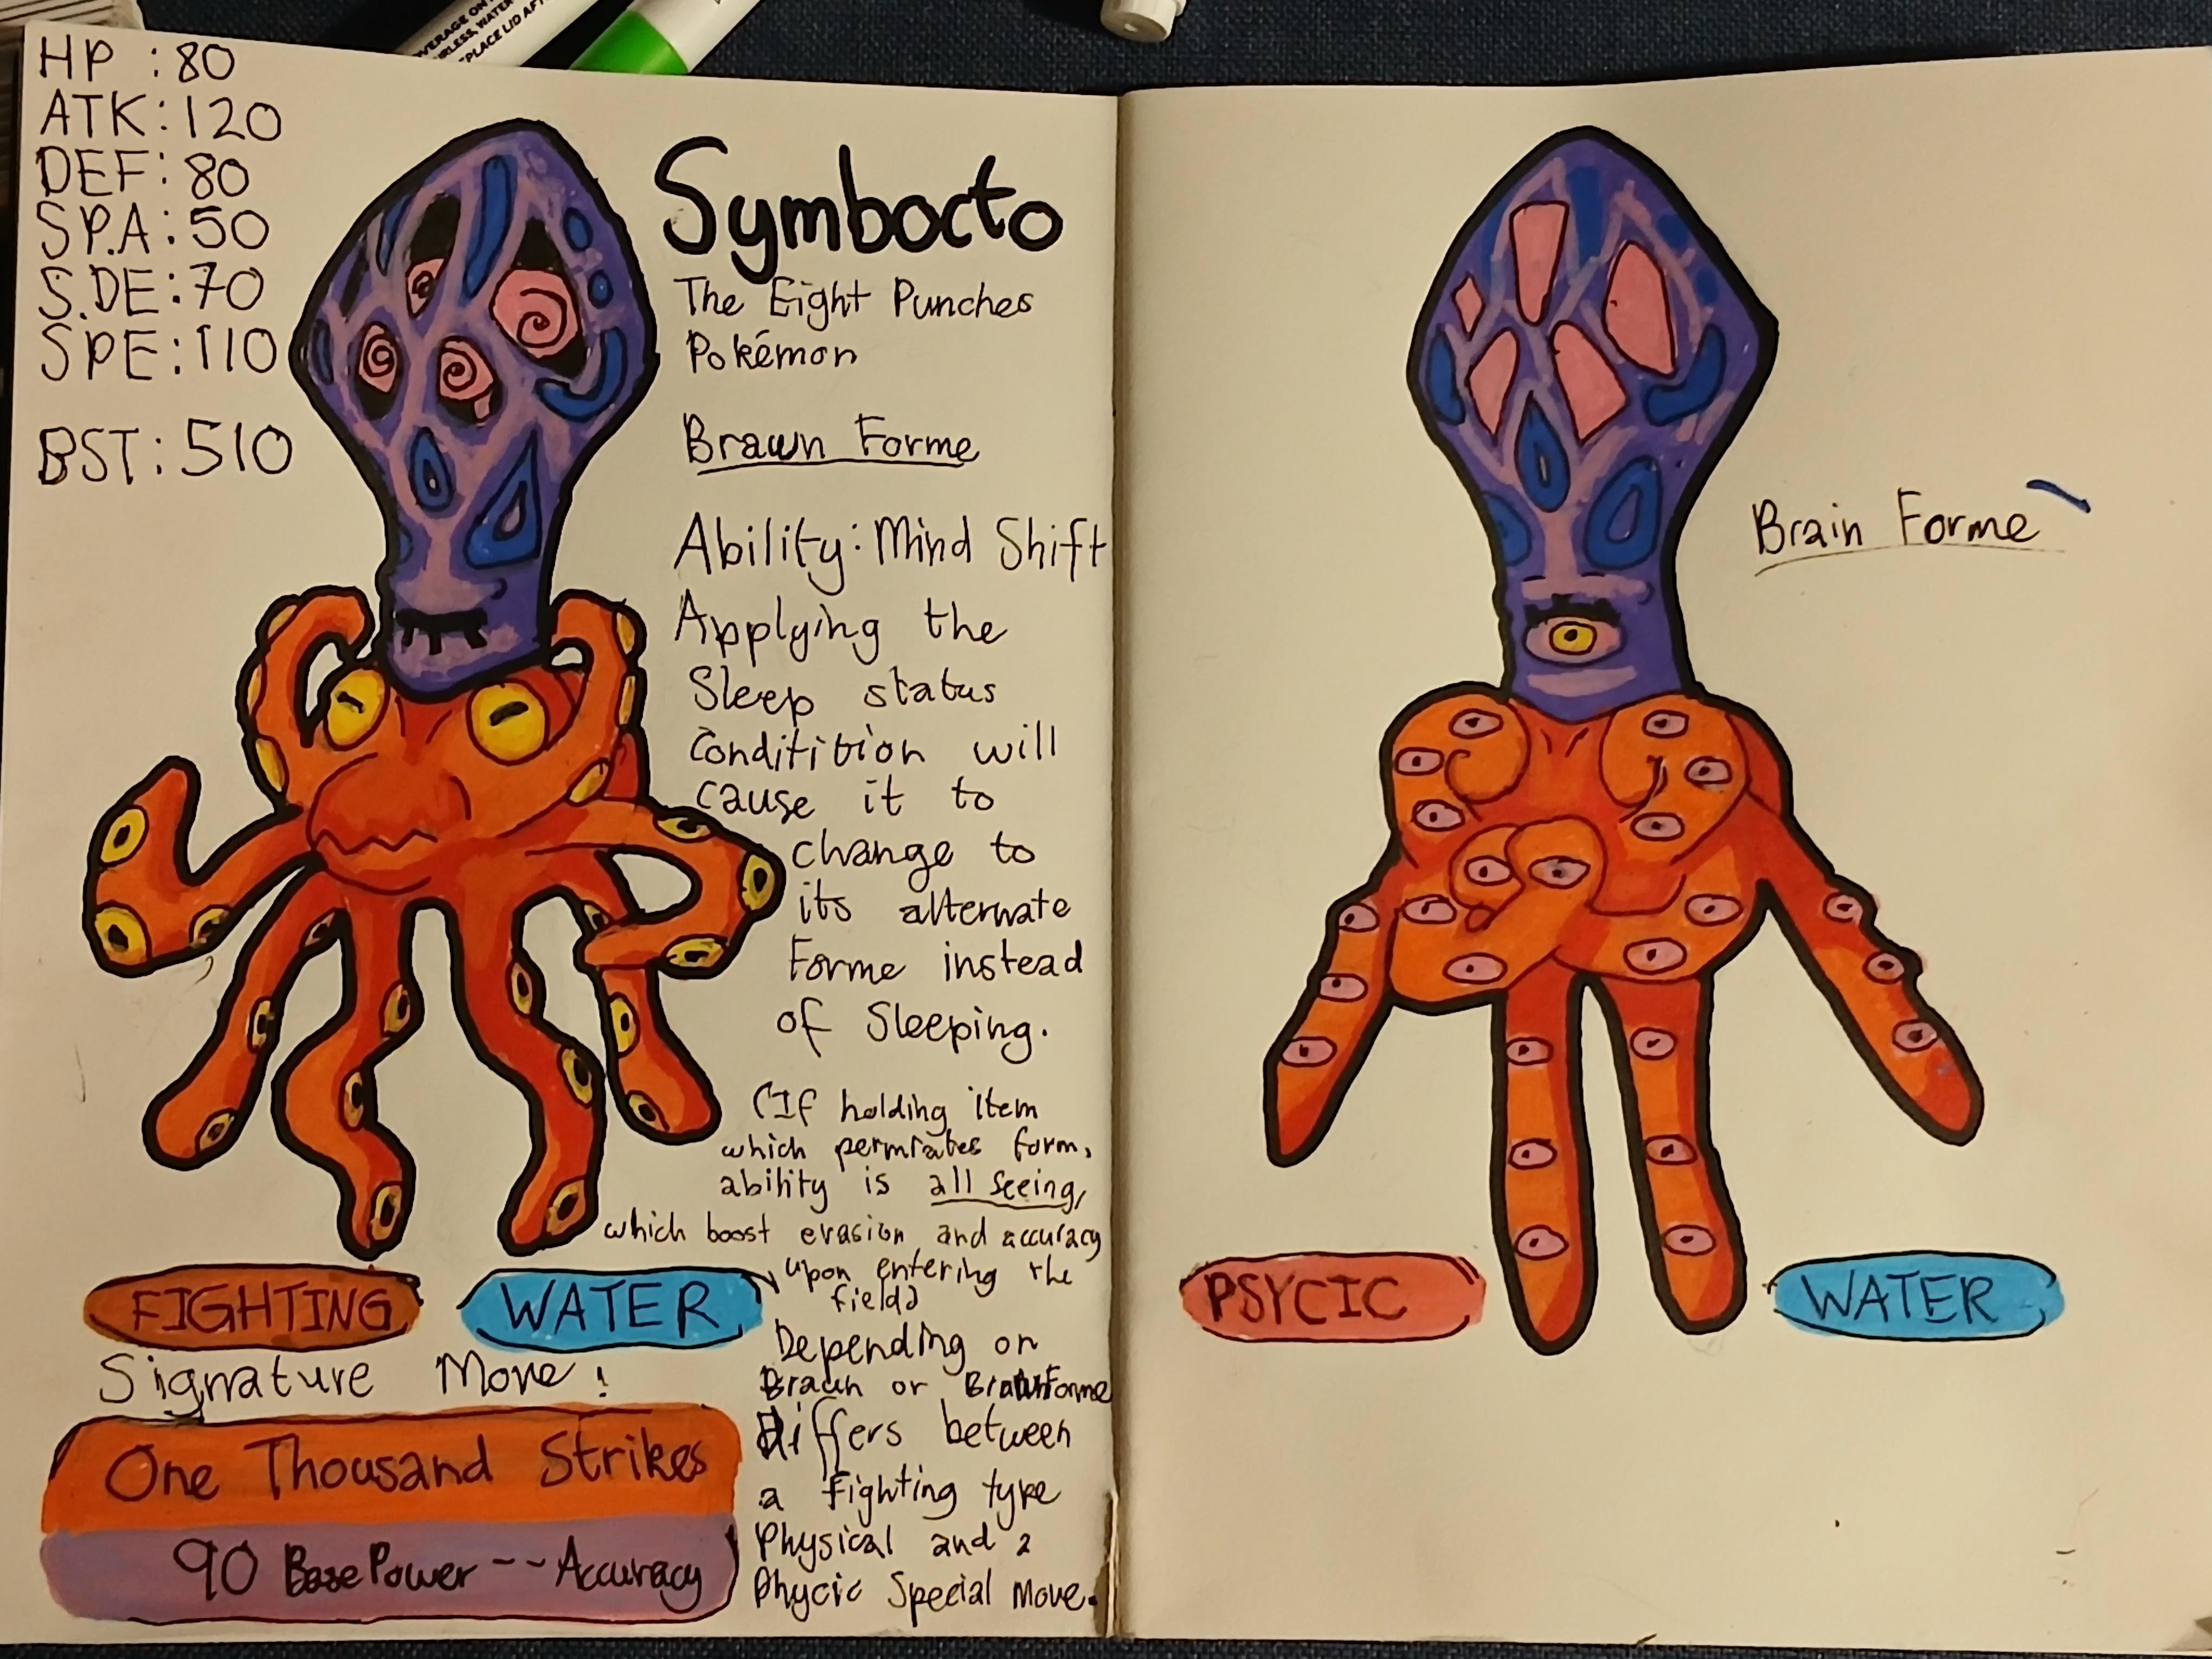 HP : 80
ATK: 120
DEF: 80
SP.A: 50
S.DE: 70
SPE: 110
BST: 510
Symbocto
The Eight Punches
Pokémon
Brawn Forme
Ability: Mind Shift
Applying the
Sleep status
Conditition will
cause it to
change to
its alternate
Forme instead
of Sleeping.
(If holding item
which permiates form,
ability is all seeing,
which boost evasion and accuracy
upon entering the
field)
FIGHTING
WATER
Signature Move!
One Thousand Strikes
90 Base Power -- Accuracy
Depending on
Brawn or Forme
Differs between
a Fighting type
Physical and a
Phycic Special Move.
Brain Forme
PSYCIC
WATER
VERAGE ON
RLESS, WATER
PLACE LID AFT